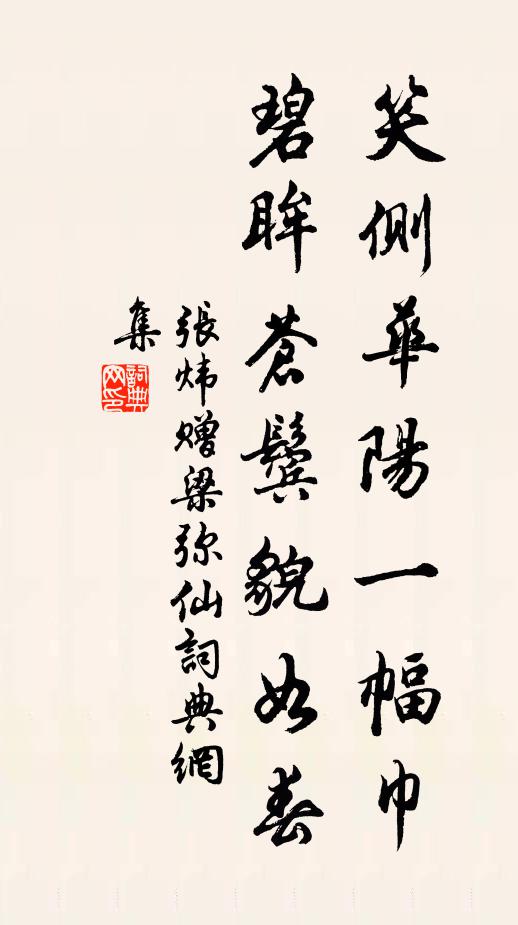 笑側華陽一幅巾
碧眸蒼鬢貌如春
張炜贈梁弥仙詞典網
集
詞典
网印